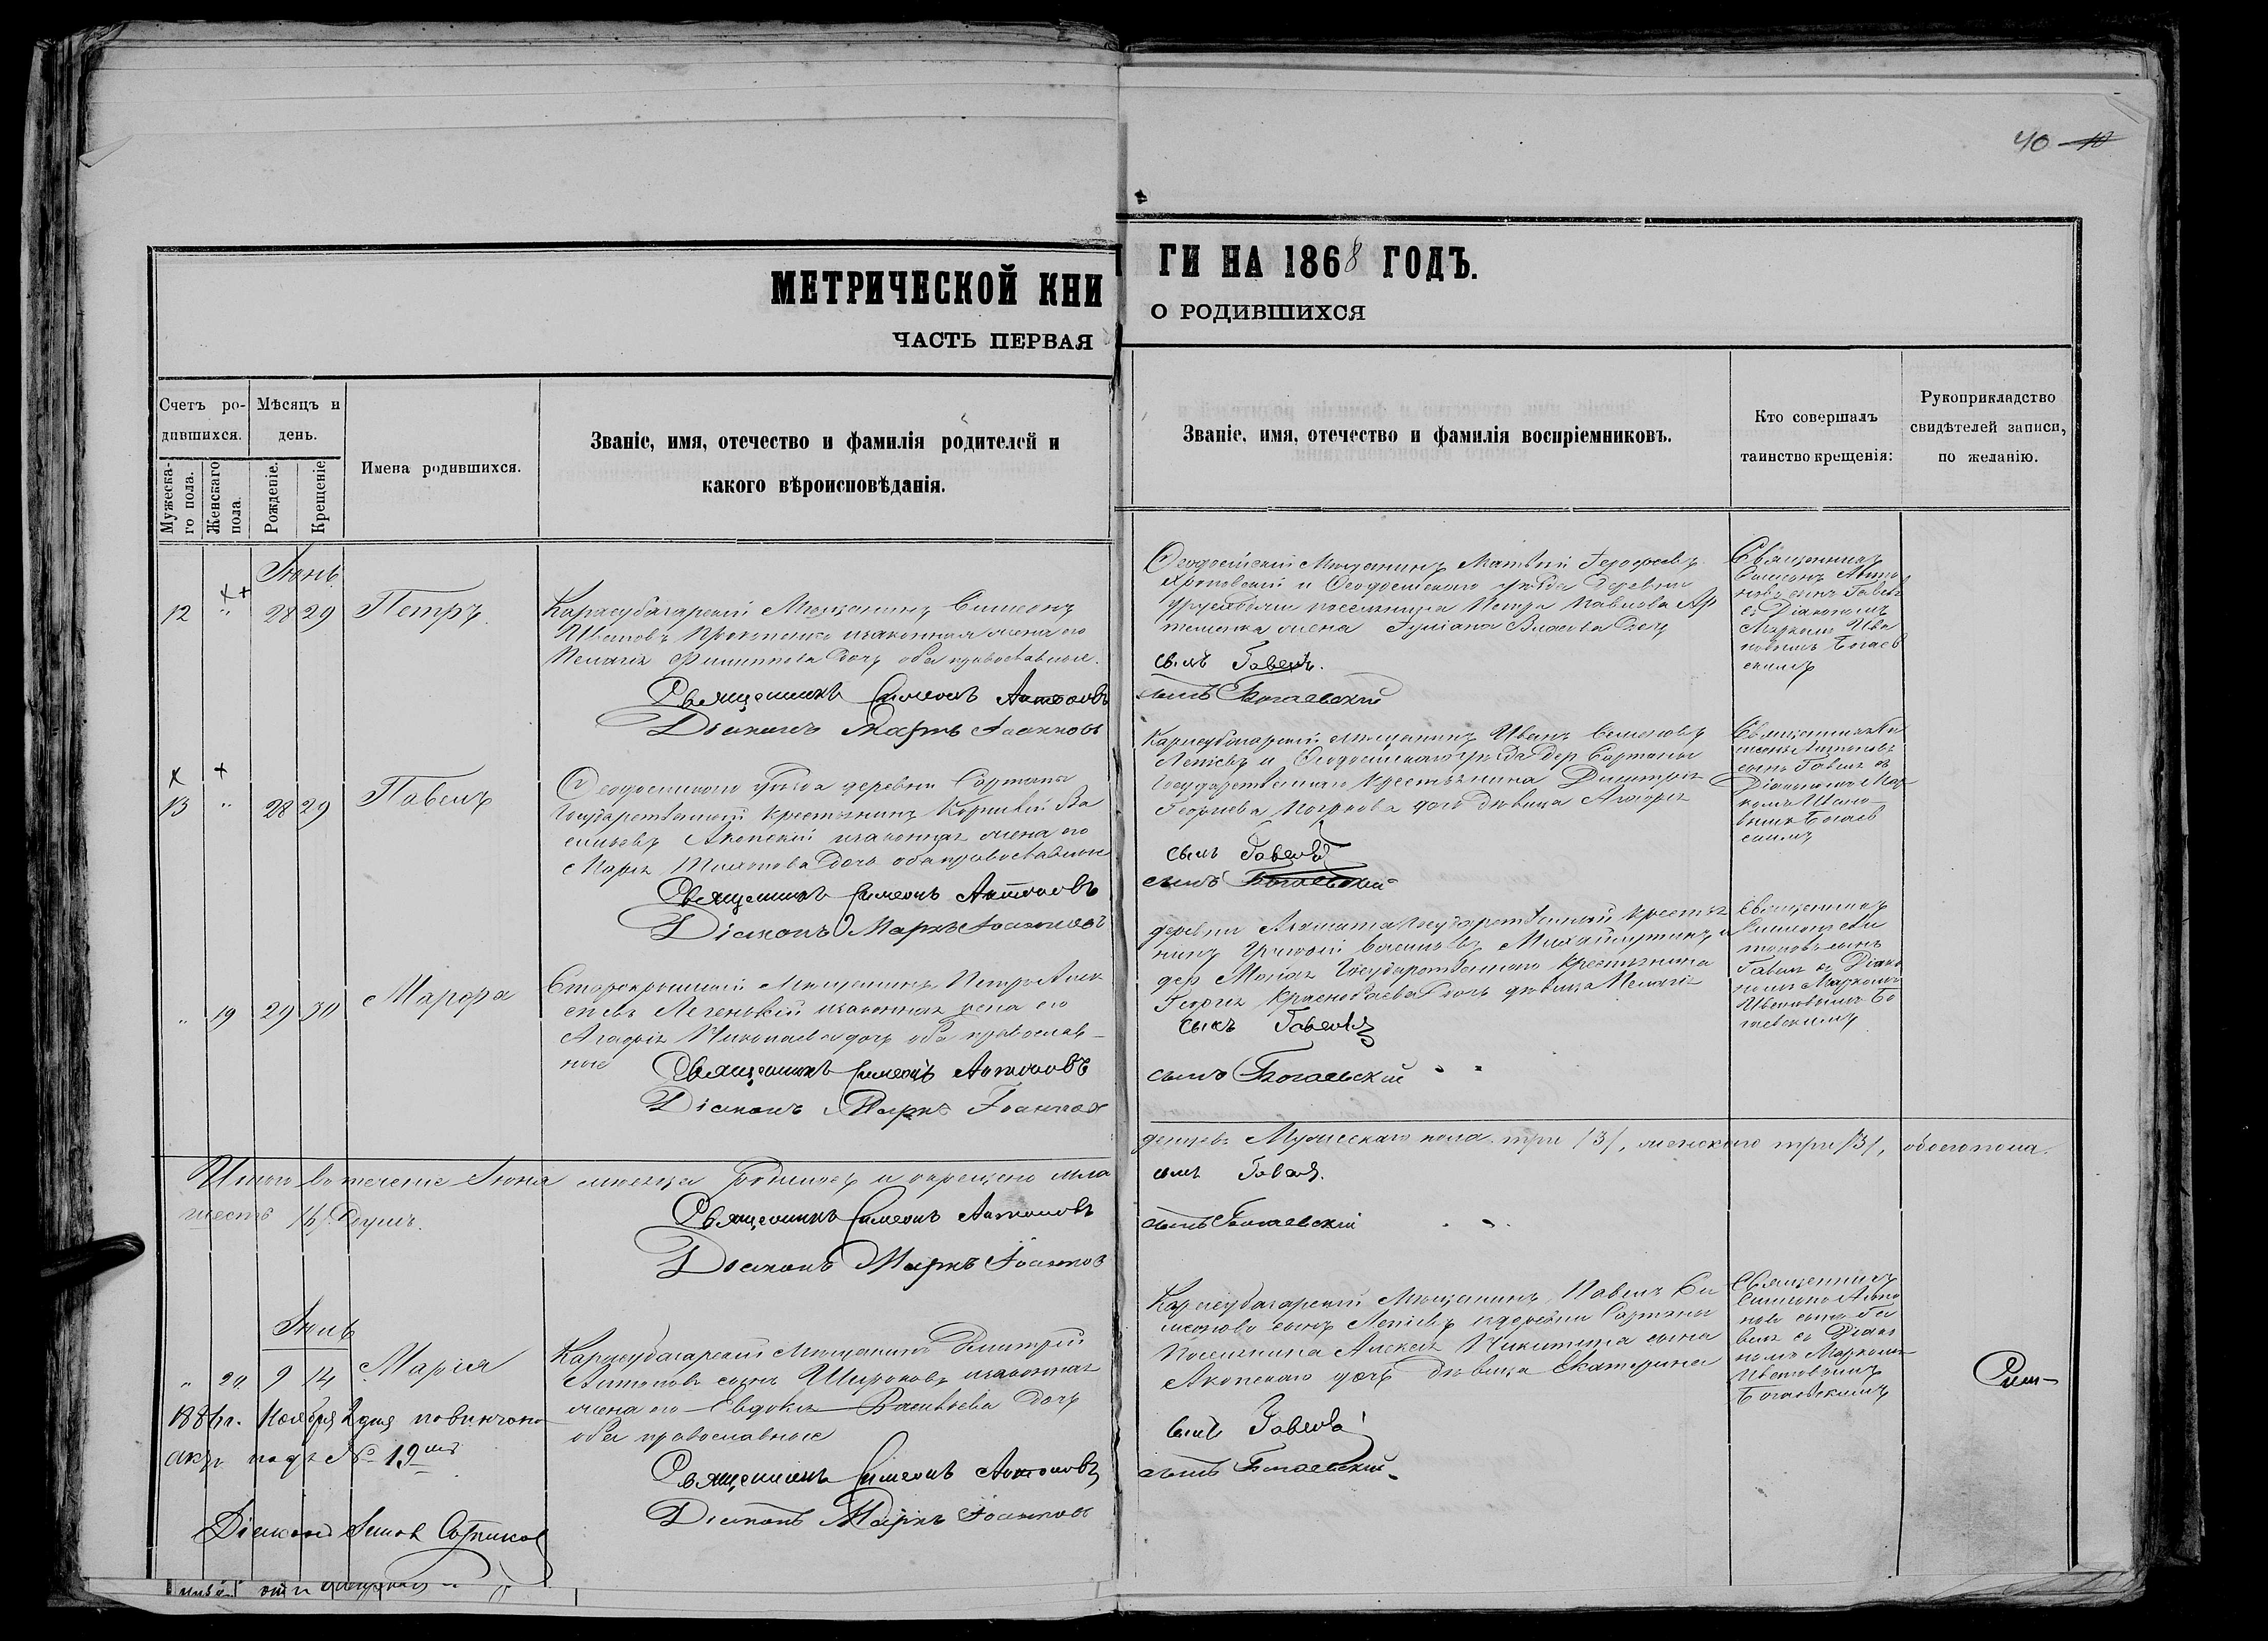 40 10
МЕТРИЧЕСКОЙ КНИ
ГИ НА 1868 ГОДЪ.
ЧАСТЬ ПЕРВАЯ
О РОДИВШИХСЯ
Счетъ ро-
дившихся.
Мужеска-
го пола.
Женскаго
пола.
Мѣсяцъ и
день.
Рожденіе.
Крещеніе
Имена родившихся.
Званіе, имя, отечество и фамилія родителей и
какого вѣроисповѣданія.
Званіе, имя, отечество и фамилія воспріемниковъ.
Кто совершалъ
таинство крещенія:
Рукоприкладство
свидѣтелей записи,
по желанію.
Іюнь
12 " 28 29 Петръ.
Карасубазарскій Мещанинъ Симеонъ
Ивановъ Прокопенко изаконная жена его
Пелагія Филиппова дочь оба православные.
Священникъ Симеонъ Антоновъ
Діаконъ Маркъ Іоанновъ
Ѳеодосійскій Мещанинъ Матвѣй
и Ѳеодосійскаго уѣзда деревни
поселянина Петра Павлова Ар
теменка жена Іуліана Власова дочь
сынъ Гавель.
сынъ Богаевскій
Священникъ
Симеонъ Анто
новъ сынъ Гавель
съ Діакономъ
Маркомъ Ива
новымъ Богаев
скимъ
13 " 28 29 Павелъ
Ѳеодосійскаго уѣзда деревни Сартаны
Государственный крестьянинъ Корнилій Ва
сильевъ Акопскій изаконная жена его
Марія Тихонова дочь оба православные
Священникъ Симеонъ Антоновъ
Діаконъ Маркъ Іоанновъ
Карасубазарскій мещанинъ Иванъ Семеновъ
Лепіевъ и Ѳеодосійскаго уѣзда дер Сартаны
Государственнаго Крестьянина Димитрія
Георгіева дочь дѣвица Агафія
сынъ Гавель
сынъ Богаевскій
Священникъ Си
меонъ Антоновъ
сынъ Гавель съ
Діакономъ Мар
комъ Ивано
вымъ Богаев
скимъ
" 19 29 30 Марфа
Старокрымскій Мещанинъ Петръ Алек
сѣевъ Легенькій изаконная жена его
Агафія Николаева дочь оба православ-
ные
Священникъ Симеонъ Антоновъ
Діаконъ Маркъ Іоанновъ
деревни Государственный крестья
нинъ Григорій Васильевъ и
дер Государственнаго Крестьянина
Георгія дочь дѣвица Пелагія
сынъ Гавель
сынъ Богаевскій
Священникъ
Симеонъ Ан
тоновъ сынъ
Гавель съ Діако
номъ Маркомъ
Ивановымъ Бо
гаевскимъ
Итого въ теченіе Іюня мѣсяца родилось и окрещено мла
денцевъ Мужескаго пола три /3/, женскаго три /3/, обоего пола
шесть /6/ душъ.
Священникъ Симеонъ Антоновъ
Діаконъ Маркъ Іоанновъ
сынъ Гавель.
сынъ Богаевскій
Іюль
" 20. 9 14 Марія
Карасубазарскій Мещанинъ Димитрій
Антоновъ сынъ Широковъ изаконная
жена его Евдокія Васильева дочь
оба православные
Священникъ Симеонъ Антоновъ
Діаконъ Маркъ Іоанновъ
Карасубазарскій Мещанинъ Павелъ Си
меоновъ сынъ Лепіевъ и деревни Сартаны
Поселянина Алексѣя Никитина сына
Акопскаго дочь дѣвица Екатерина
сынъ Гавель
сынъ Богаевскій
Священникъ
Симеонъ Анто
новъ сынъ Га
вель съ Діако
номъ Маркомъ
Ивановымъ
Богаевскимъ
Ноября 2 дня повинчано
актъ подъ № 19
Діаконъ